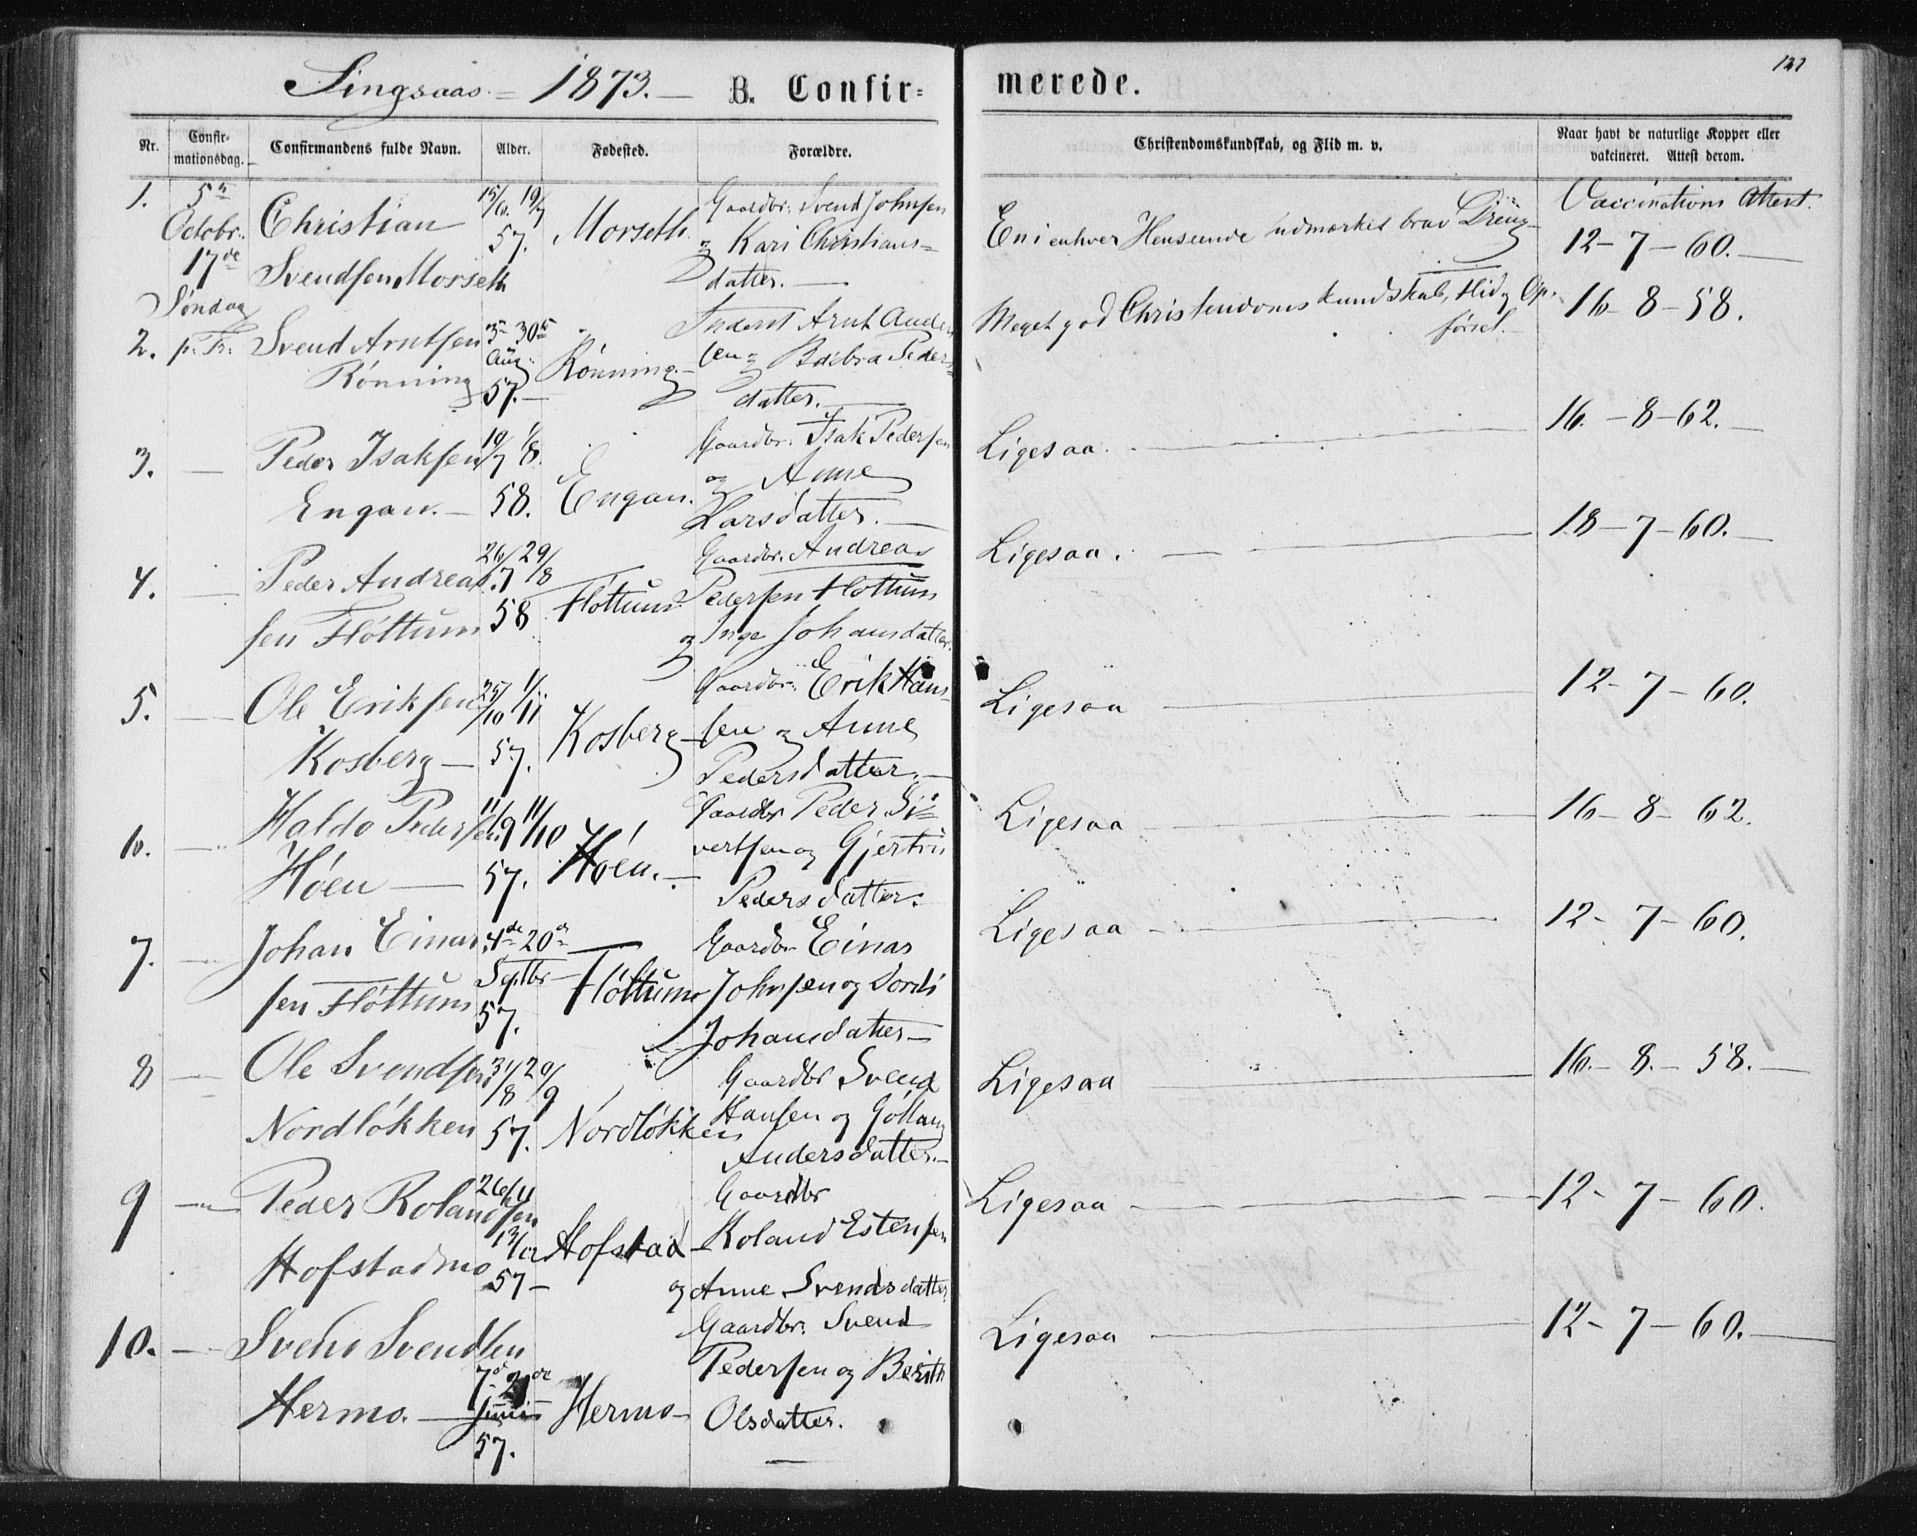 Singsaas 1873. B. Confirmerede. 121
Nr. Confirmationsdag. Confirmandens fulde Navn. Alder. Fødested. Forældre. Christendomskundskab, og Flid m. v. Naar havt de naturlige Kopper eller vakcineret. Attest derom.
1. 5te Christian 15/6 19/7 Morseth Gaardbr: Svend Johnsen Vaccinations Attest.
Octobr. 57. og Kari Christians= En i enhver Henseende udmærket brav Dreng 12-7-60.
17de Svendsen Morseth datter.
Søndag
2. p. Tr. Svend Arntsen 3 30 Rønning Inderst Arnt Ander Meget god Christendomskundskab, Flid og Op- 16-8-58.
Rønning Aug. sen og Barbra Peders= førsel.
57. datter.
3. Peder Isaksen 19/7 1/8 Engan. Gaardbr: Isak Pedersen Ligesaa. 16-8-62.
Engan. 58. og Anne
Larsdatter.
4. Peder Andreas 26/7 29/8 Fløttum Gaardbr: Andreas Ligesaa. 18-7-60.
sen Fløttum 58 Pedersen Fløttum
og Inge Johansdatter.
5. Ole Eriksen 25/10 1/11 Kosberg Gaardbr: Erik Hans Ligesaa 12-7-60.
Kosberg 57. sen og Anne
Pedersdatter.
6. Haldo Pedersen 11/9 11/10 Høen. Gaardbr Peder Si= Ligesaa 16-8-62.
Høen 57. vertsen og Gjertru
Pedersdatter.
7. Johan Einar 4de 20de Fløttum Gaardbr Einar Ligesaa 12-7-60.
sen Fløttum Septbr Johnsen og Dordi
57. Johansdatter
8 Ole Svendsen 31/8 20/9 Nordløkken Gaardbr Svend Ligesaa 16-8-58.
Nordløkken 57. Hansen og
Andersdatter.
9 Peder Rolandsen 26/11 Hofstad Gaardbr Ligesaa 12-7-60.
Hofstadmo 13/12 Roland Estensen
57 og Anne Svendsdatter
10. Svend Svendsen Gaardbr: Svend Ligesaa 12-7-60.
7de Pedersen og Berith
Hermo. Juni Hermo Olsdatter.
57.